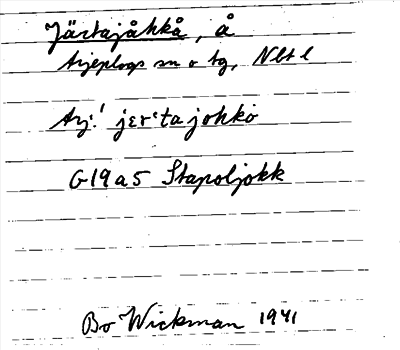 Järtajåkkå, å
Arjeplogs sn o tg, Nbt l
Arj.! jɛr'ta johkò
G19a5 Stapoljokk
Bo Wickman 1941